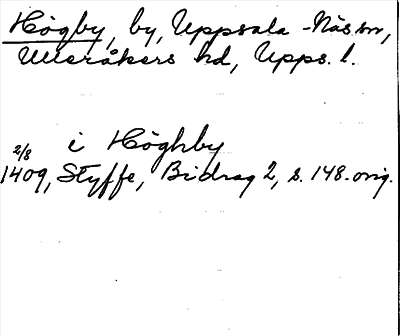 Högby, by, Uppsala-Näs sn,
Ulleråkers hd, Upps. l.
i Höghby
2/8
1409, Styffe, Bidrag 2, s. 148. orig.